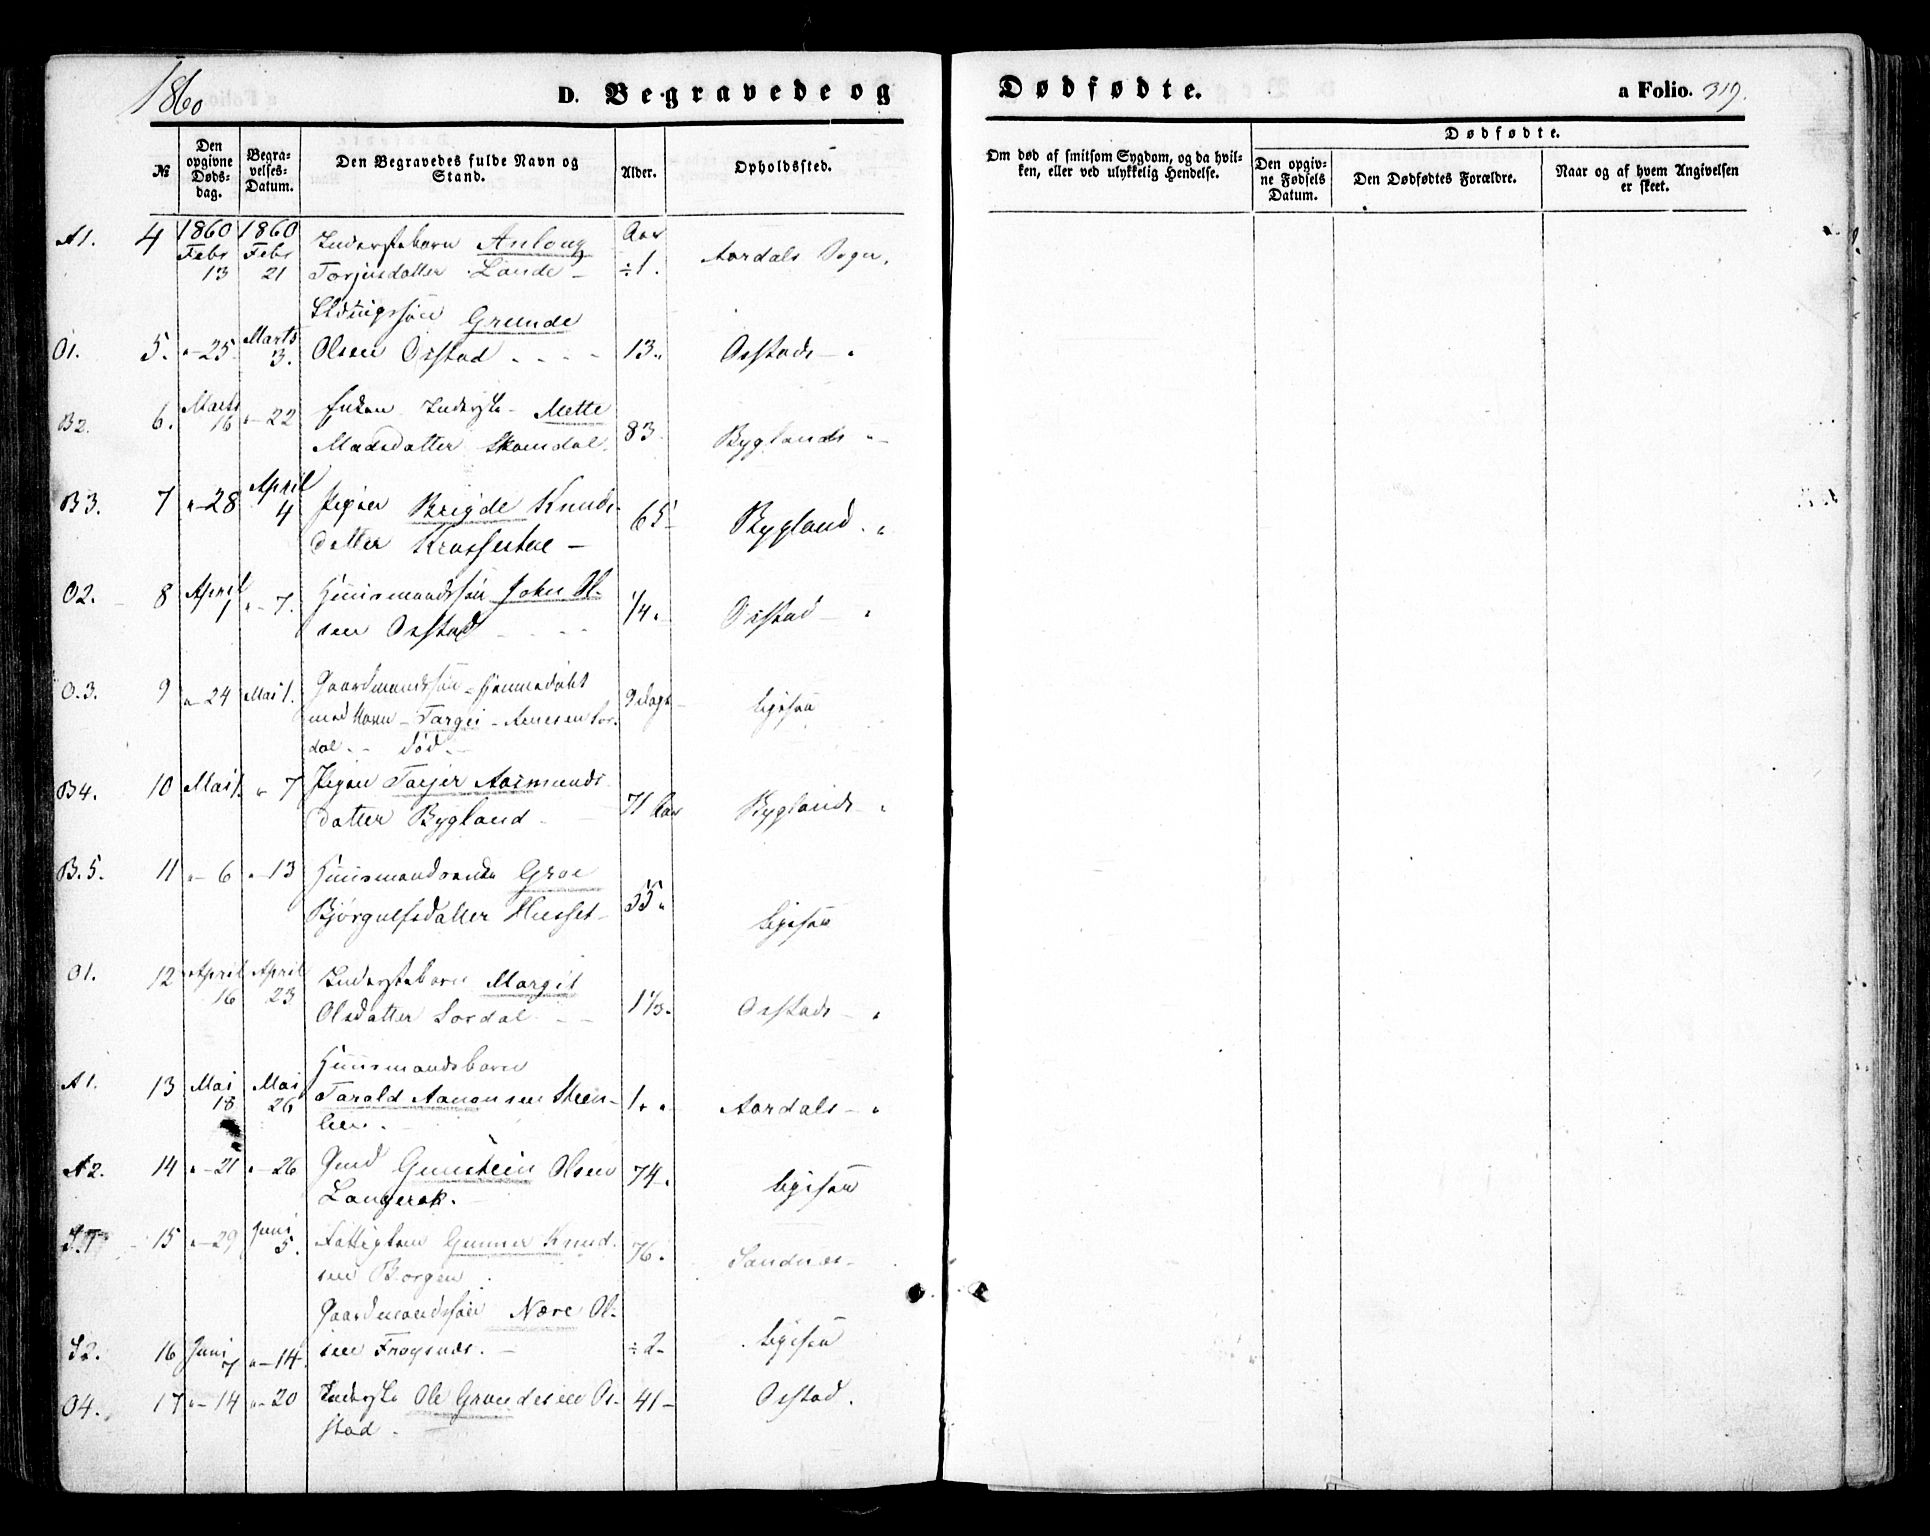 1860
D. Begravede og Dødfødte. a Folio. 319.
№
Den opgivne Døds-dag.
Begra-velses-Datum.
Den Begravedes fulde Navn og Stand.
Alder.
Opholdssted.
Om død af smitsom Sygdom, og da hvil-ken, eller ved ulykkelig Hendelse.
Dødfødte.
Den opgiv-ne Fødsels Datum.
Den Dødfødtes Forældre.
Naar og af hvem Angivelsen er skeet.
A1. 4 1860 Febr 13 1860 Febr 21 Inderstebarn Anlong
Torjusdatter Lande – Aar ÷1. Aardals Sogn.
O1. 5. "–25 Marts 3. Grunde
Olsen Ostad 13. Ostads – "
B2. 6. Marts 16 "–22 Enken Inderste Mette
Madsdatter Skomdal. 83. Byglands " –
B3. 7 "–28 April 4 Pigen Brigde Knuds-
datter – 65– Bygland. "
O2. 8 April 1 "–7. Huusmandssøn John Ol-
sen Ostad 1/4. Ostad – "
O.3. 9 "–24 Mai 1. Gaardmandssøn – Hjemmedøbt
med Navn – Targei – Arnesen Lor-
dal – død – 9 dage – ligesaa
B4. 10 Mai 1. "7 Pigen Torjer Aasmunds-
datter Bygland – 71 Aar Byglands – "
B.5. 11 "–6 "–13 Huusmandsenke Groe
Bjørgulfsdatter Husset – 55. ligesaa
O1. 12 April 16 April 23 Inderstebarn Margit
Olsdatter Lordal – 1 1/3. Ostads – "
A1. 13 Mai 18 Mai 26 Huusmandsbarn
Tarald Aanonsen Steen-
lien. 1. " Aardals – "
A2. 14 "–21 "–26 Gmd Gunstein Olsen
Langerak. – 74. ligesaa
15 "–29 Juni 5. Fattiglem Gunner Knud-
sen Borgen 76. Sandnes –
Gaardmandssøn Nære Ol-
S2. 16 Juni 7 "–14. sen Frøysnæs. – ÷2– ligesaa
O4. 17 "–14 "–20 Inderste Ole Grundesen Os-
stad. – 41– Ostad.